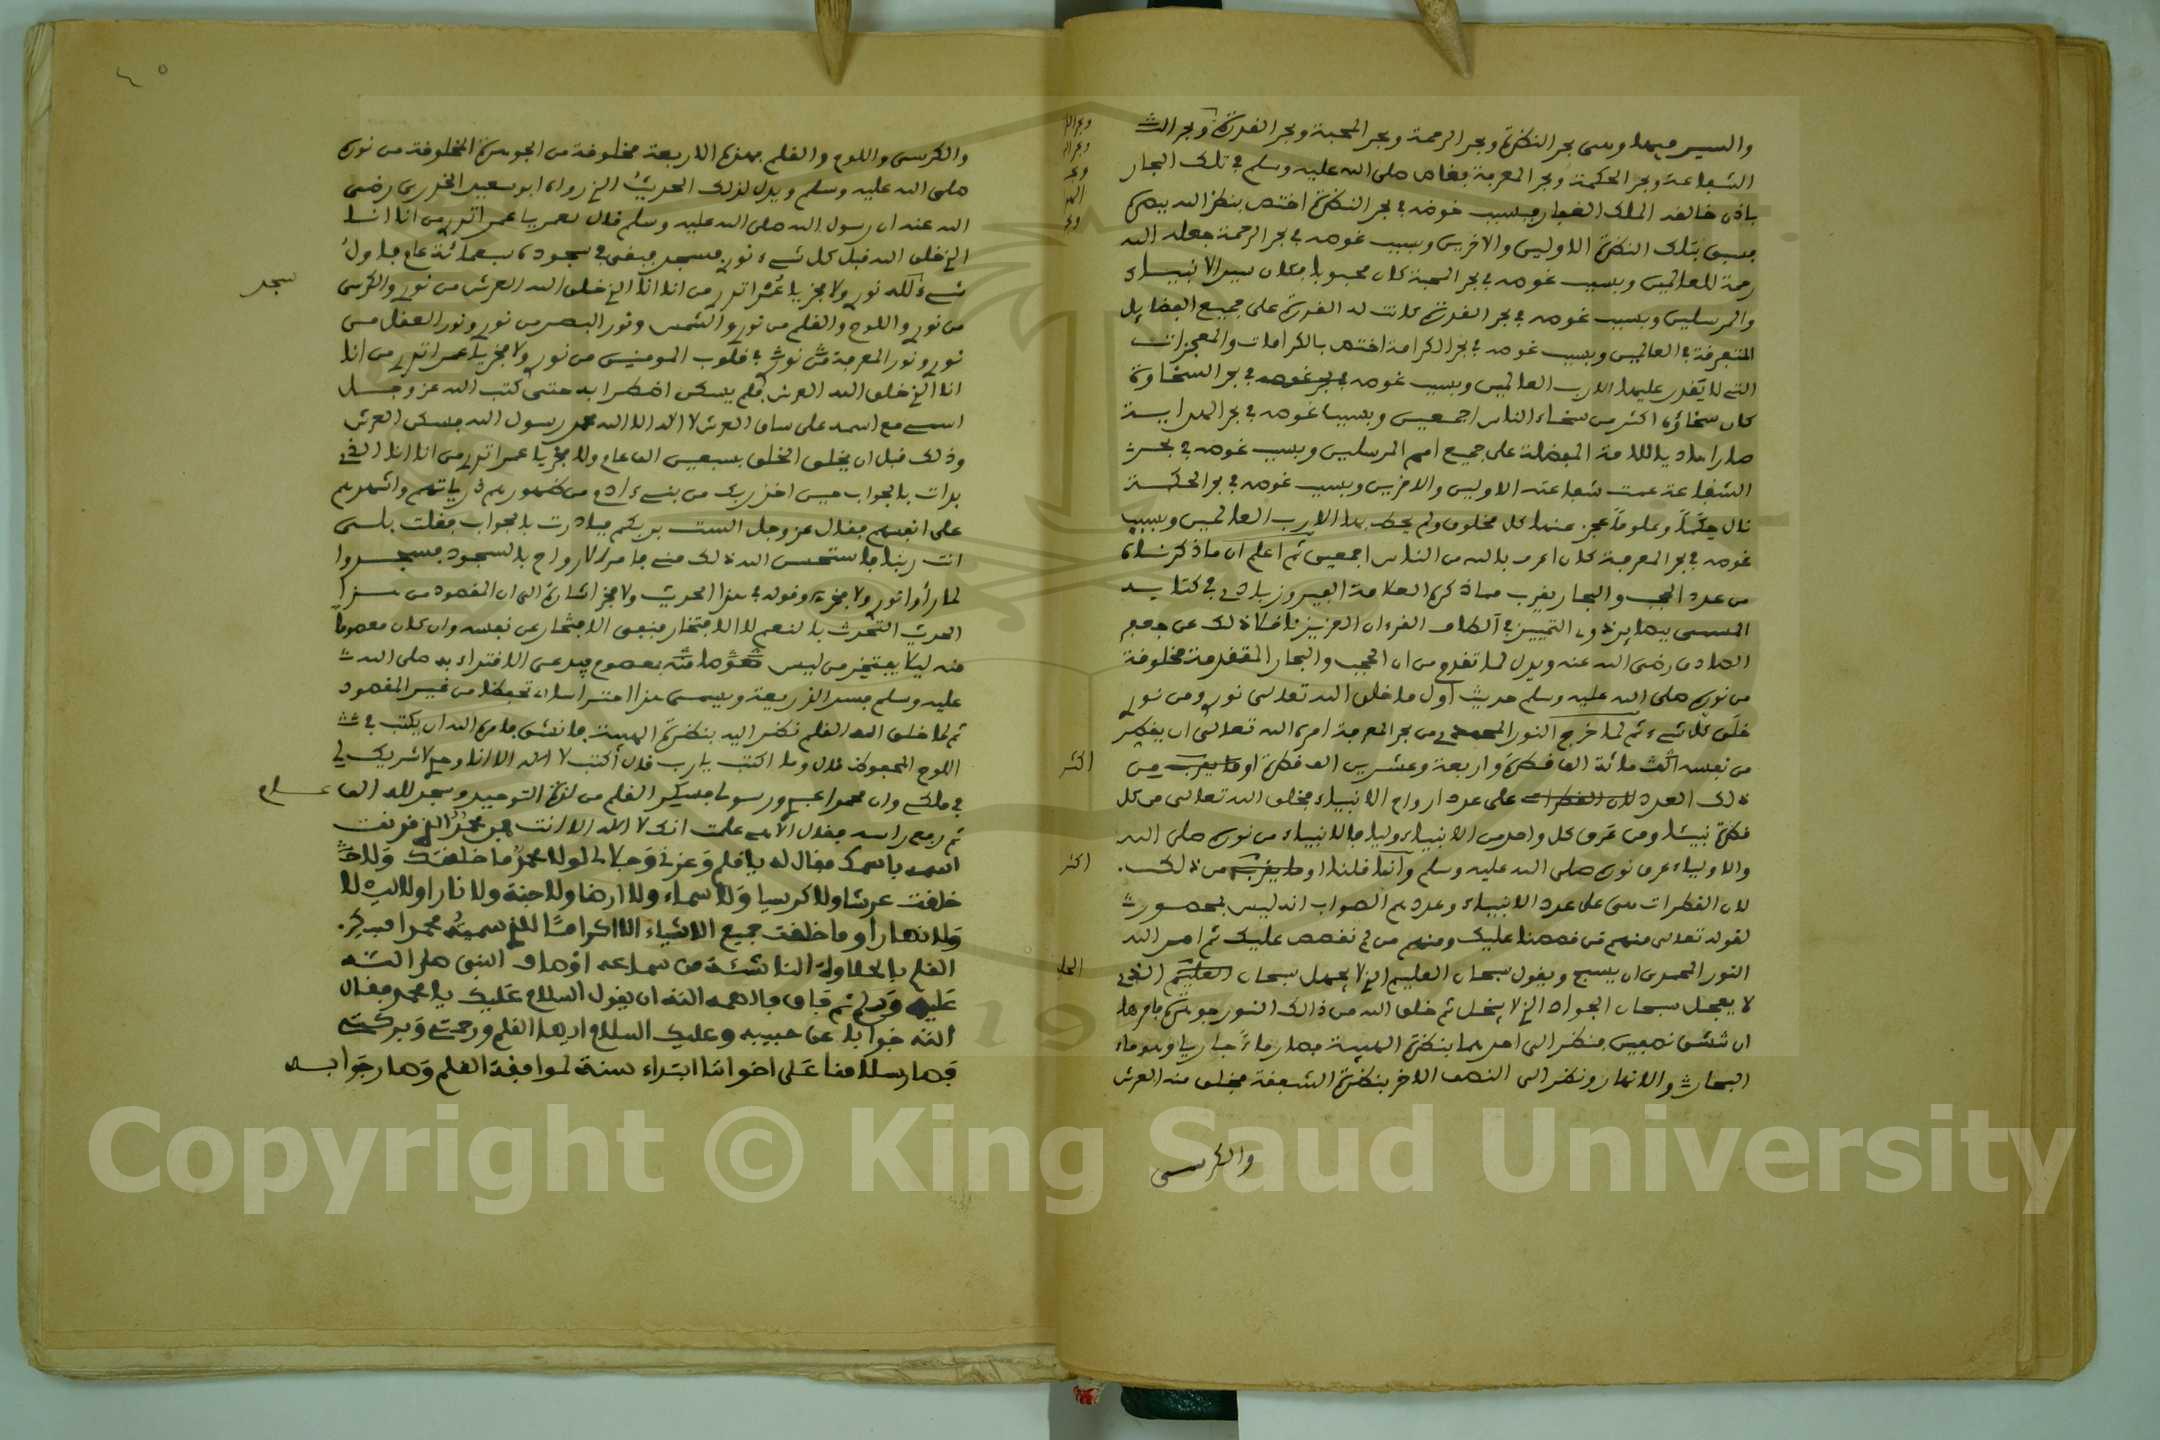 والسير فيها وهي بحر النظرة وبحر الرحمة وبحر المحبة وبحر القدرة وبحر
الشفاعة وبحر الحكمة وبحر المعرفة فغاص صلى الله عليه وسلم في تلك البحار
باذن خالقه الملك الغفار فبسبب غوصه في بحر النظرة اختص بنظر الله
فسبق بتلك النظرة الاولين والاخرين وبسبب غوصه في بحر الرحمة جعله الله
رحمة للعالمين وبسبب غوصه في بحر المحبة كان محبوبا فكان سيد الانبياء
والمرسلين وبسبب غوصه في بحر القدرة كانت له القدرة على جميع الفضايل
المتفرقة في العالمين وبسبب غوصه في بحر الكرامة اختص بالكرامات والمعجزات
التي لا يقدر عليها الا رب العالمين وبسبب غوصه في بحر السخاوة
كان سخاؤه اكثر من سخاء الناس اجمعين وبسبب غوصه في بحر الهداية
صار هاديا للامة المفضلة على جميع امم المرسلين وبسبب غوصه في بحر
الشفاعة عمت شفاعته الاولين والاخرين وبسبب غوصه في بحر الحكمة
نال حكما وعلوما عجز عنها كل مخلوق ولم يحط بها الا رب العالمين وبسبب
غوصه في بحر المعرفة كان اعرف بالله من الناس اجمعين ثم اعلم ان ما ذكرناه
من عدد الحجب والبحار يقرب مما ذكره العلامة الفيروزبادي في كتابه
المسمى بصاير ذوي التمييز في الطاف القرءان العزيز ناقلا ذلك عن جعفر
الصادق رضي الله عنه ويدل لما تقدم من ان الحجب والبحار المتقدمة مخلوقة
من نوره صلى الله عليه وسلم حديث اول ما خلق الله تعالى نوري ومن نوري
خلق كل شيء ثم لما خرج النور المحمدي من بحر المعرفة امره الله تعالى ان يقطر
من نفسه مائة الف قطرة واربعة وعشرين الف قطرة او ما يقرب من
ذلك العدد على عدد ارواح الانبياء فخلق الله تعالى من كل
قطرة نبيئا ومن عرق كل واحد من الانبياء وليا فالانبياء من نوره صلى الله
والاولياء عرق نوره صلى الله عليه وسلم وانما قلنا او ما يقرب من ذلك
لان القطرات هي على عدد الانبياء وعددهم الصواب انه ليس بمحصور
لقوله تعالى منهم من قصصنا عليك ومنهم من لم نقصص عليك ثم امر الله
النور المحمدي ان يسبح ويقول سبحان العليم الذي لا يجهل سبحان الحليم الذي
لا يعجل سبحان الجواد الذي لا يبخل ثم خلق الله من ذالك النور جوهرة فامرها
ان تنشق نصفين فنظر الى احدهما بنظرة الهيبة فصار ماء جاريا وهو ماء
البحار والانهار ونظر الى النصف الاخر بنظرة الشفقة فخلق منه العرش
والكرسي
اكثر
اكثر
والكرسي واللوح والقلم فهذه الاربعة مخلوقة من الجوهرة المخلوقة من نوره
صلى الله عليه وسلم ويدل لذلك الحديث الذي رواه ابو سعيد الخدري رضي
الله عنه ان رسول الله صلى الله عليه وسلم قال لعمر يا عمر اتدري من انا انا
الذي خلق الله قبل كل شيء نوري فسجد فبقي في سجوده سبعمائة عام فاول
شيء سجد لله نوري ولا فخر يا عمر اتدري من انا انا الذي خلق الله العرش من نوري والكرسي
من نوري واللوح والقلم من نوري والشمس ونور البصر من نوري ونور العقل من
نوري ونور المعرفة في قلوب المومنين من نوري ولا فخر يا عمر اتدري من انا
انا الذي خلق الله العرش فلم يسكن اضطرابه حتى كتب الله عز وجل
اسمي مع اسمه على ساق العرش لا اله الا الله محمد رسول الله فسكن العرش
وذلك قبل ان يخلق الخلق بسبعين الف عام ولا فخر يا عمر اتدري من انا انا الذي
بدات بالجواب حين اخذ ربك من بني ءادم من ظهورهم ذرياتهم واشهدهم
على انفسهم فقال عز وجل الست بربكم فبادرت بالجواب فقلت بلى
انت ربنا فاستحسن الله ذلك مني فامر الارواح بالسجود فسجدوا
لما رأوا نوري ولا فخر وقوله في هذا الحديث ولا فخر اشارة الى ان المقصود من هذا
الحديث التحدث بالنعم لا الافتخار فنفى الافتخار عن نفسه وان كان معصوما
منه ليلا يفتخر من ليس بمعصوم فيدعي الاقتداء به صلى الله
عليه وسلم فسد الذريعة ويسمى هذا احتراسا تحفظا من غير المقصود
ثم لما خلق الله القلم نظر اليه بنظرة الهيبة فانشق فامره الله ان يكتب في
اللوح المحفوظ قال وما اكتب يا رب قال اكتب لا اله الا انا وحدي لا شريك لي
في ملكي وان محمدا عبدي ورسولي فسكر القلم من لذة التوحيد وسجد لله الف عام
ثم رفع راسه فقال الاهي علمت انك لا اله الا انت فمن محمد الذي قرنت
اسمه باسمك فقال له يا قلم وعزتي وجلالي لولا محمد ما خلقتك ولا
خلقت عرشا ولا كرسيا ولا سماء ولا ارضا ولا جنة ولا نارا ولا ليلا
ولا نهارا وما خلقت جميع الاشياء الا اكراما للذي سميته محمدا فسكر
القلم بالحلاوة الناشئة من سماعه اوصاف النبي صلى الله
عليه وسلم ثم فاق فالهمه الله ان يقول السلام عليك يا محمد فقال
الله جوابا عن حبيبه وعليك السلام ايها القلم ورحمتي وبركتي
فصار سلامنا على اخواننا ابتداء سنة لموافقة القلم وصار جوابه
سجد